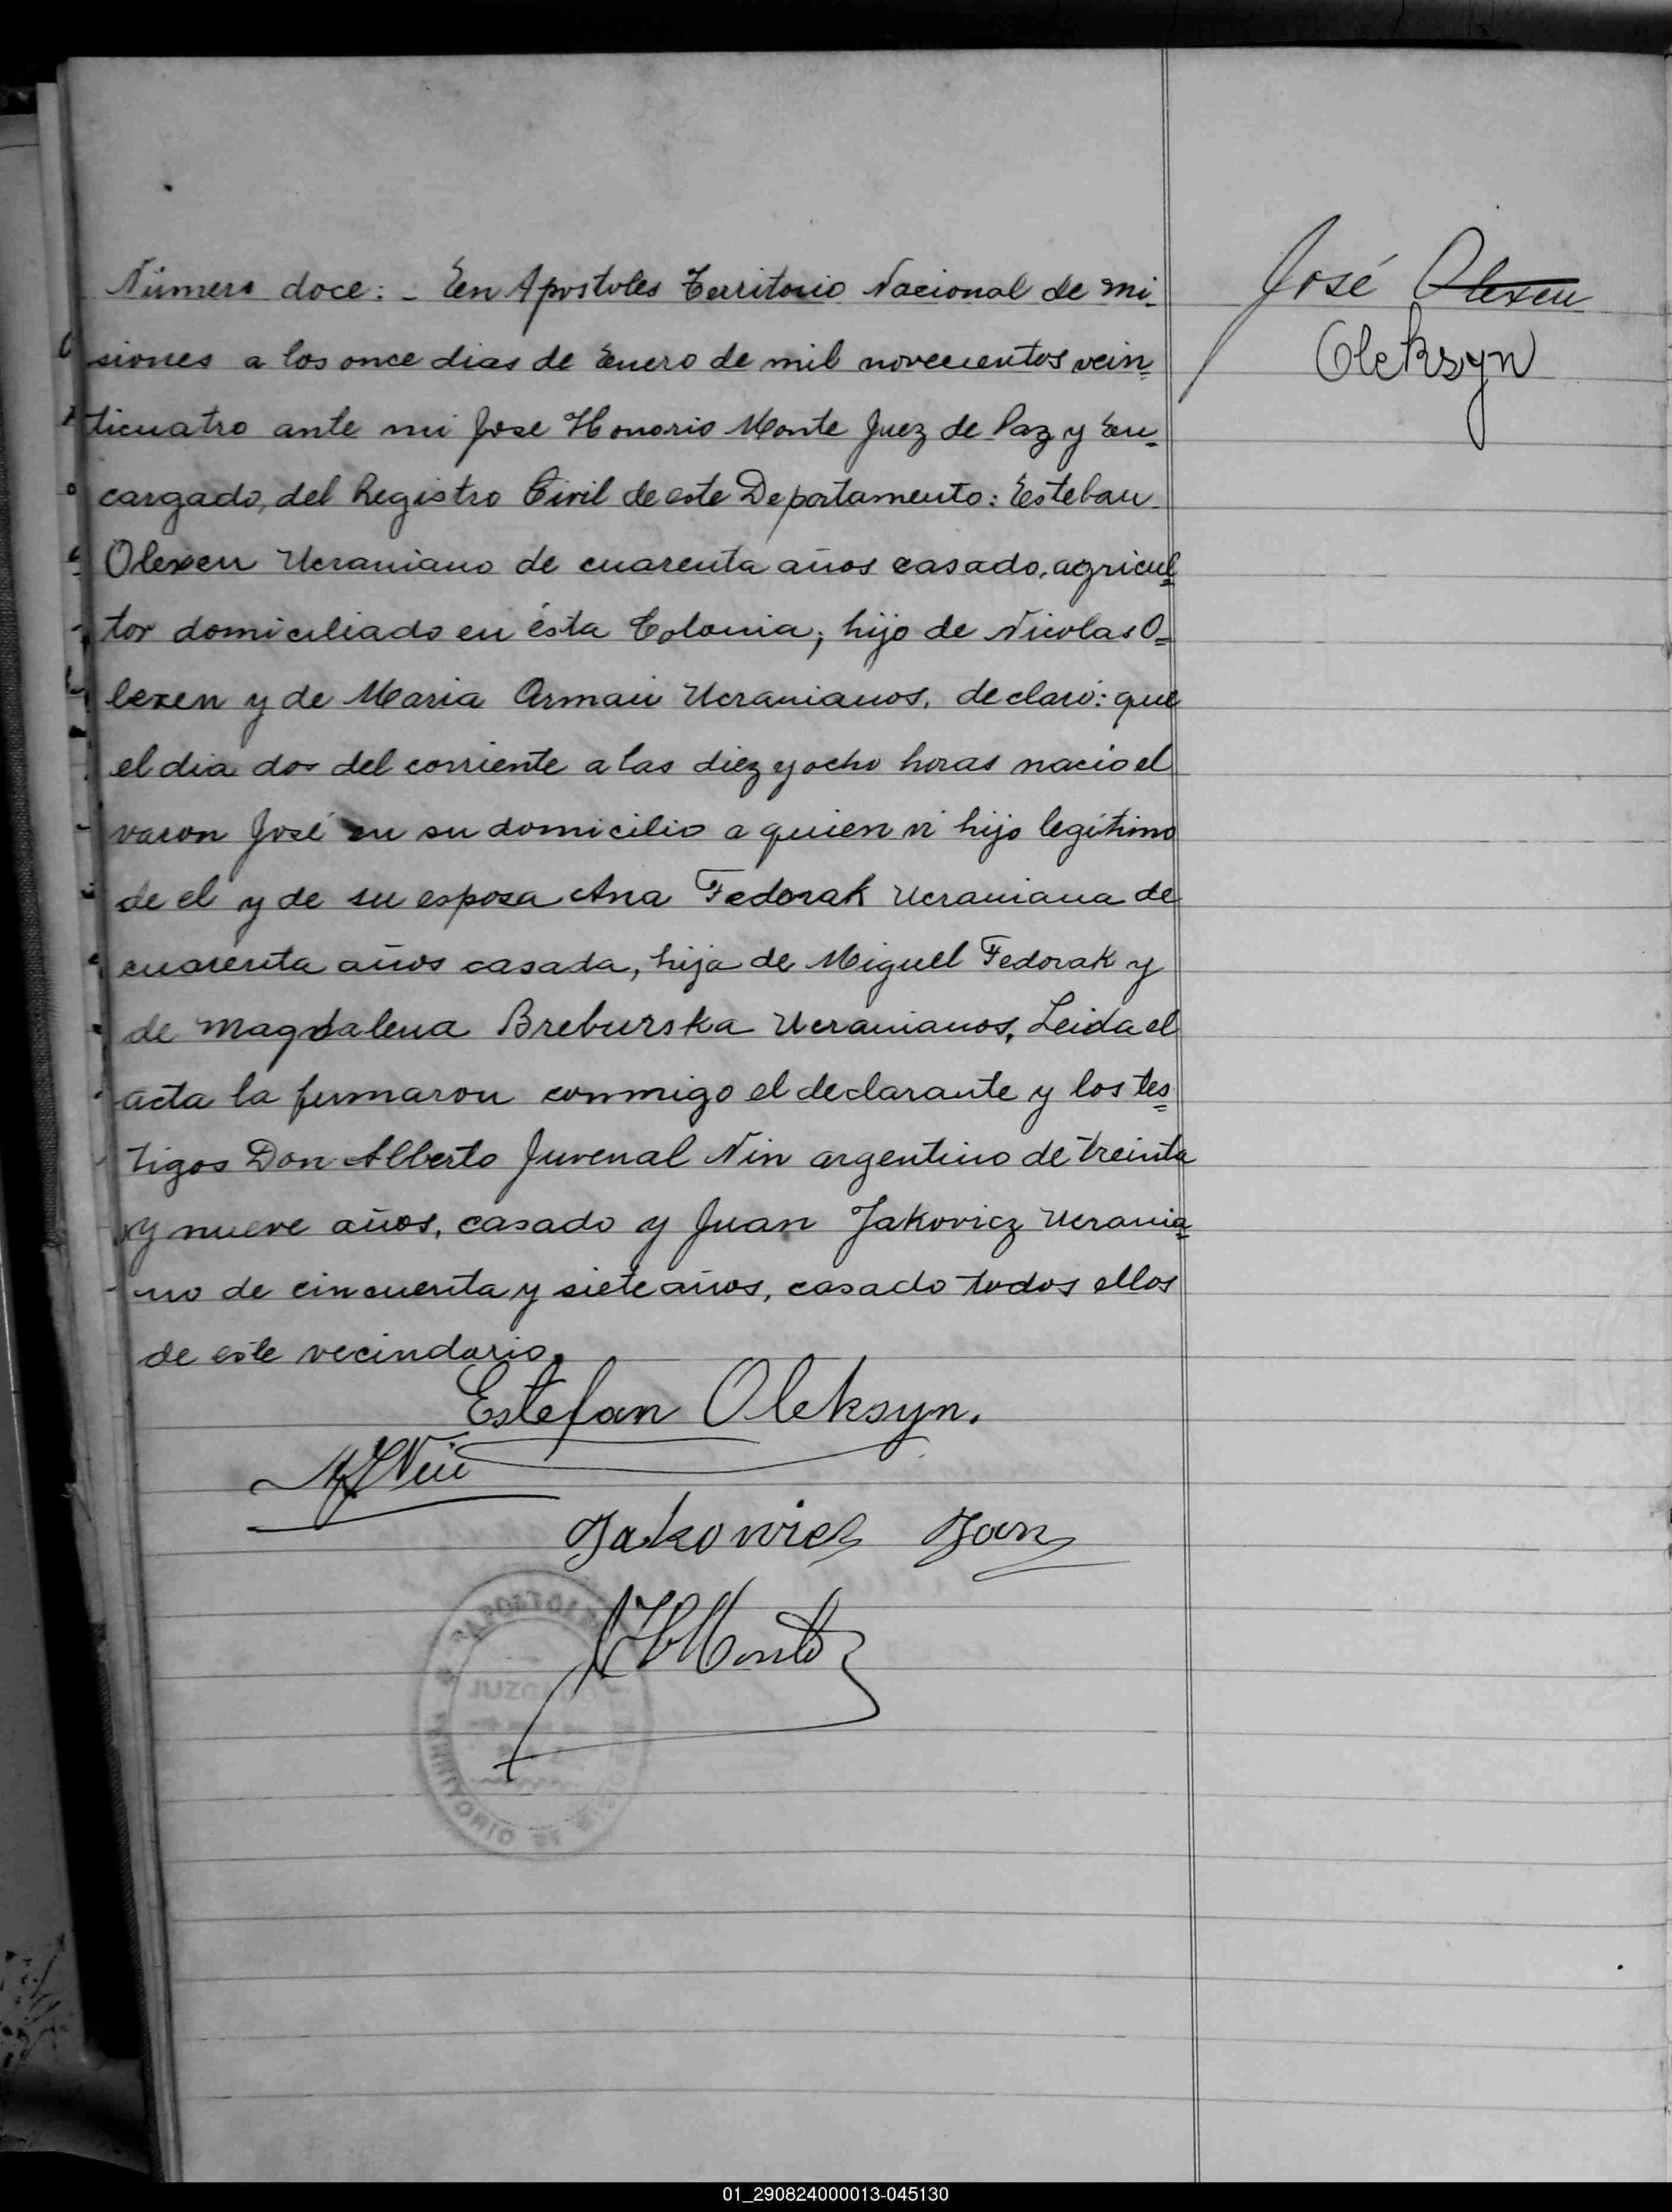 Número doce: - En Apostoles Territorio Nacional de Mi-
siones a los once dias de Enero de mil novecientos vein-
ticuatro ante mi Jose Honorio Monte Juez de Paz y En-
cargado, del Registro Civil de este Departamento: Esteban
Olexen Ucraniano de cuarenta años casado, agricul-
tor domiciliado en ésta Colonia; hijo de Nicolas O-
lexen y de Maria Ucranianos, declaró: que
el dia dos del corriente a las diez y ocho horas nacio el
varon José en su domicilio a quien vi hijo legítimo
de el y de su esposa Ana Fedorak Ucraniana de
cuarenta años casada, hija de Miguel Fedorak y
de Magdalena Breburska Ucranianos, Leida el
acta la firmaron conmigo el declarante y los tes-
tigos Don Alberto Juvenal Nin argentino de treinta
y nueve años, casado y Juan Jakovicz Ucrania-
no de cincuenta y siete años, casado todos ellos
de este vecindario.
Estefan Oleksyn.
AJNin
Jakowicz Jan
JHMonte
José Olexen
Oleksyn
01_290824000013-045130